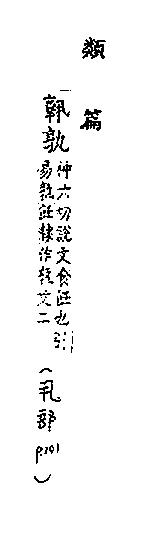 類篇
孰
神六切說文食飪也引
易孰飪隸作孰文二
(丮部 p.101)